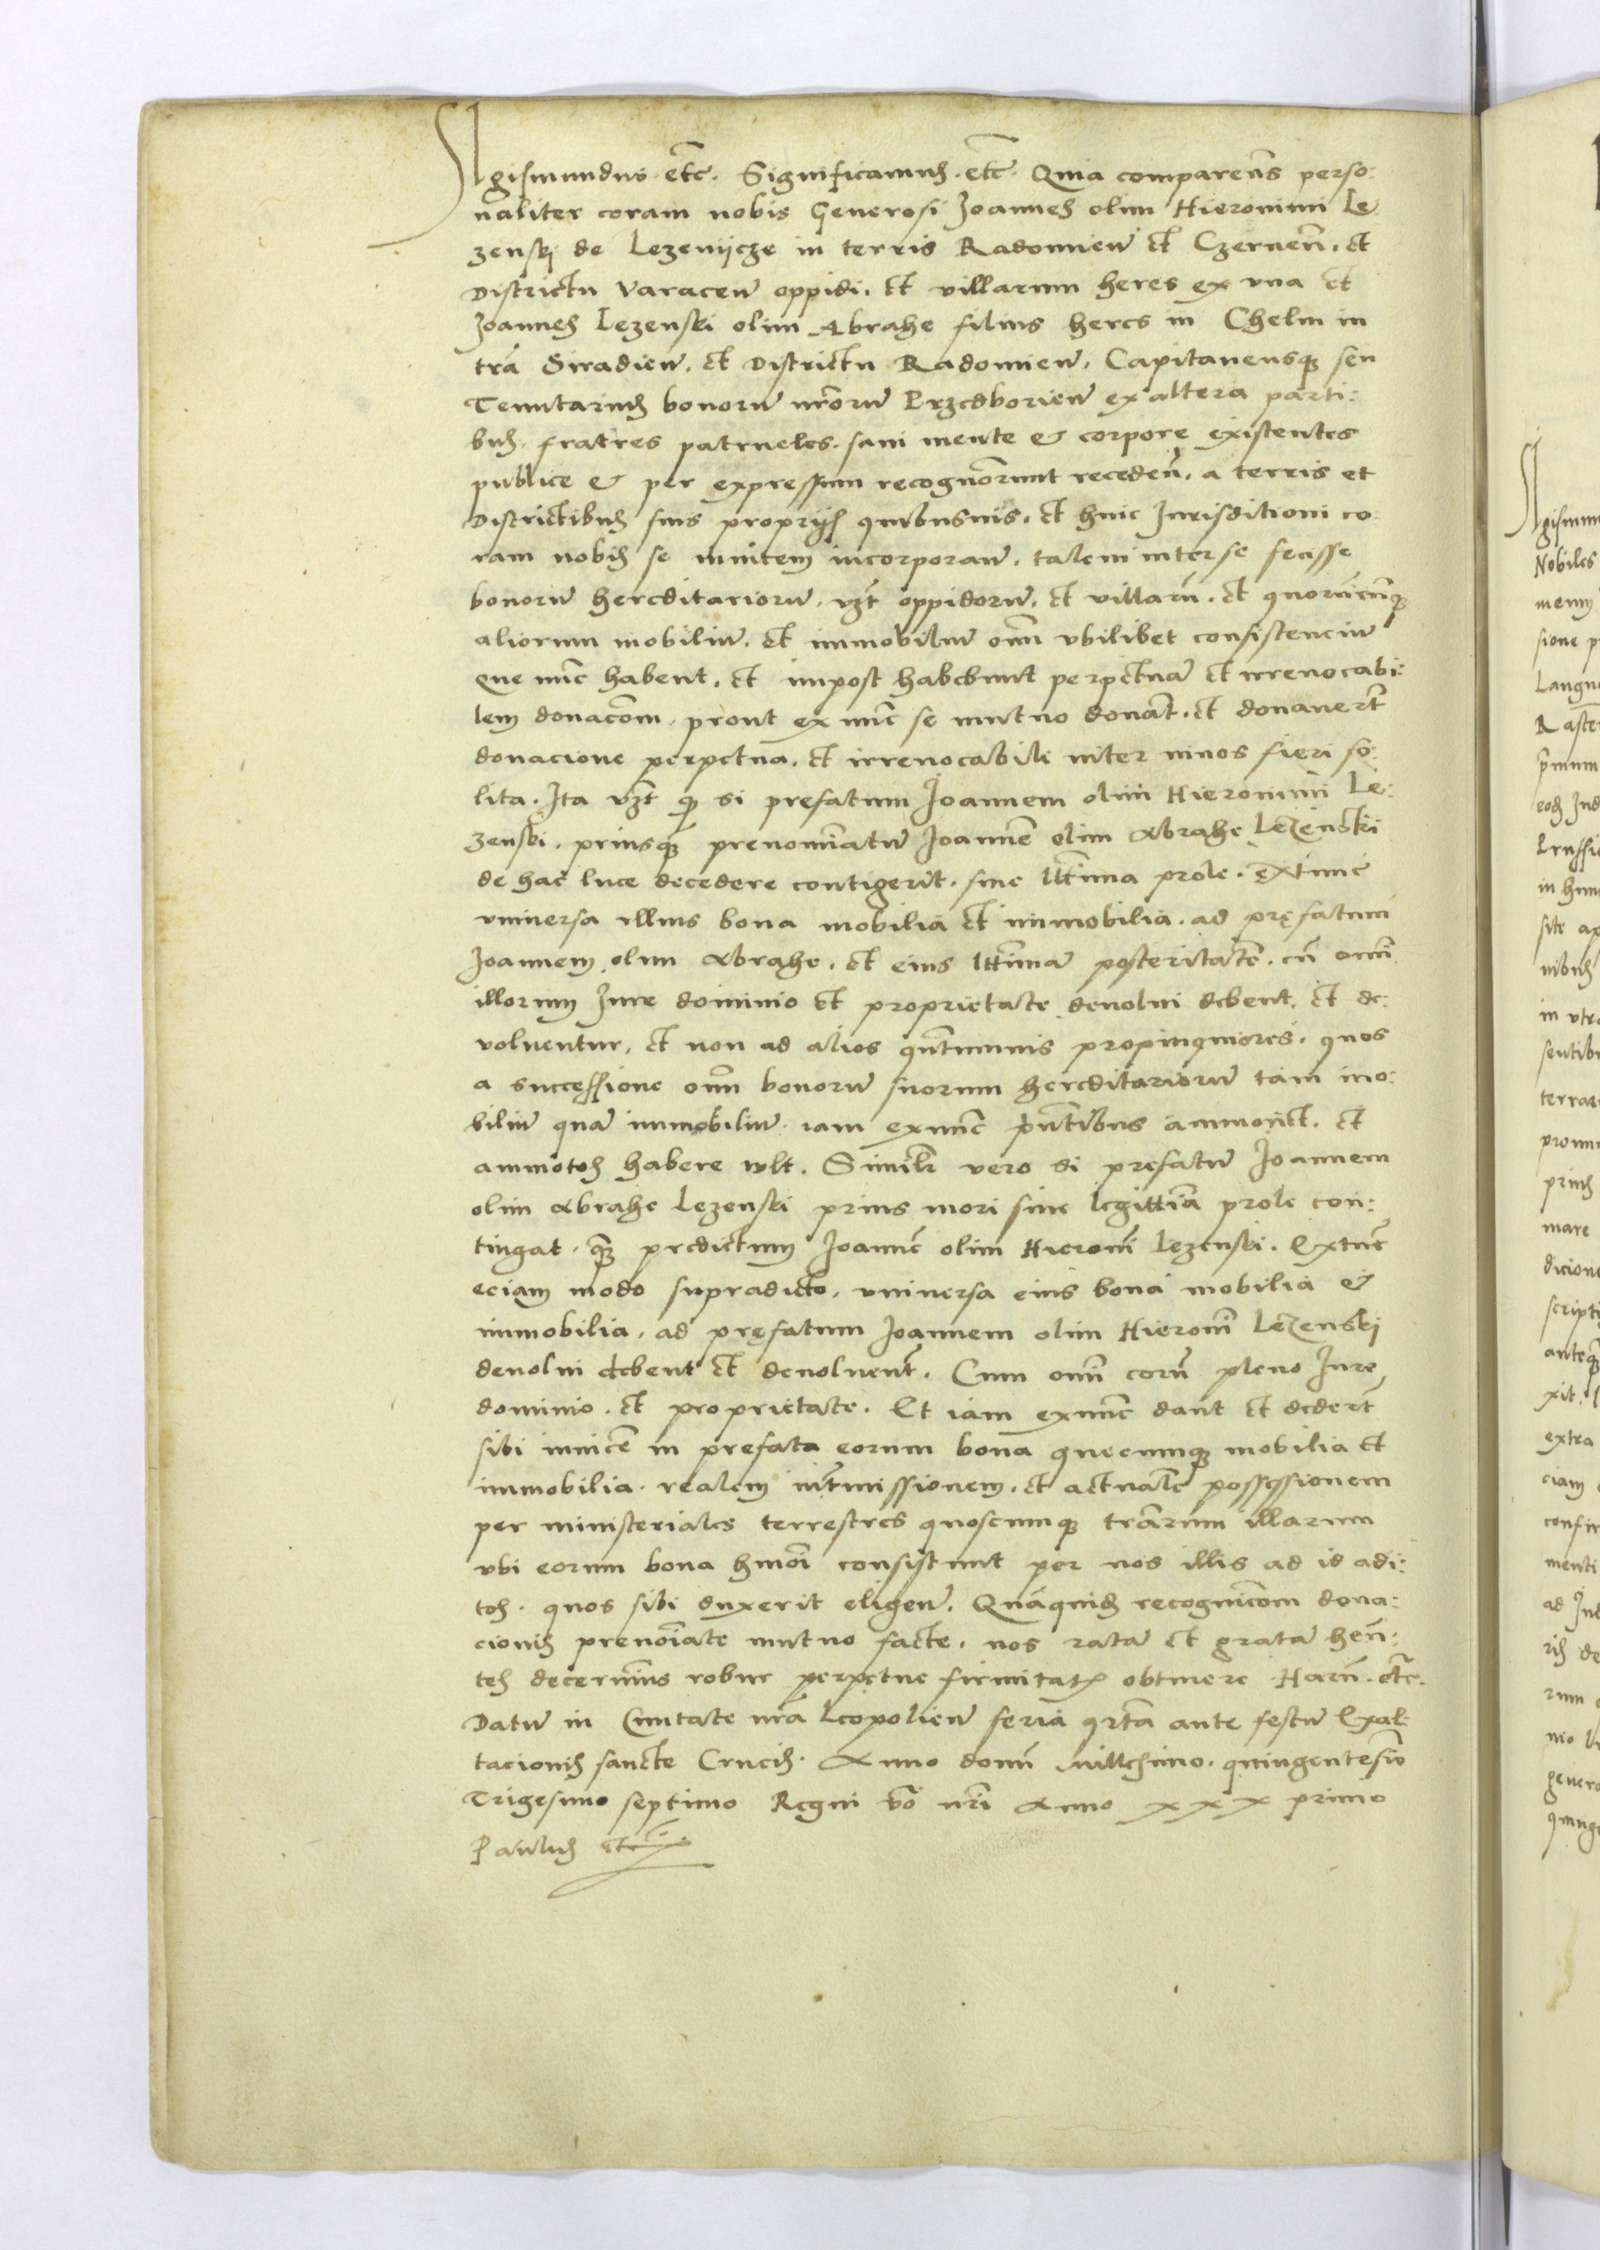 Sigismundus etc. Significamus. etc. Quia comparens perso:
naliter coram nobis Generosi Joannes olim Hieronimi Le
zenski de Lezenijcze in terris Radomien et Czernen. et
Districtu Varacen oppidi. et villarum heres ex una et
Joannes Lezenski olim Abrahe filius heres in Chelm in
tra Siradien. et Districtu Radomien. Capitaneusq seu
Tenutarius bonoru nroru Przedborien ex altera parti:
bus. fratres patrueles. sani mente & corpore existentes
publice & per expressum recognorunt receden. a terris et
Districtibus suis proprijs quibusuis. et huic Jurisditioni co
ram nobis se inuicem incorporan. talem inter se fecisse
bonoru hereditarioru. vzt oppidoru. et villaru. et quorucunq
aliorum mobiliu. et immobiliu omn vbilibet consistenciu
que nunc habent. et impost habebunt perpetua et irreuocabi:
lem donacom. prout ex nunc se mutuo donant. et donauert
donacione perpetua. et irreuocabile inter viuos fieri so:
lita. Ita vzt q si prefatum Joannem olim Hieronimi Le:
zenski. priusq prenominatu Joanne olim Abrahe Lezenski
de hac luce decedere contigerit. sine lttima prole. extunc
vniuersa illius bona mobilia et immobilia. ad prefatum
Joannem olim Abrahe. et eius lttima posteritate. cu omni
illorum Jure dominio et proprietate deuolui debent. et de:
voluentur. et non ad alios quntumuis propinquiores. quos
a successione omn bonoru suorum hereditarioru tam mo:
biliu qua immobiliu. iam exnunc pntibus ammouet. et
ammotos habere vult. Similr vero si prefatu Joannem
olim Abrahe Lezenski prius mori sine legittia prole con:
tingat. qz predictum Joanne olim Hieroni Lezenski. Extunc
eciam modo supradicto. vniuersa eius bona mobilia &
immobilia. ad prefatum Joannem olim Hieroni Lezenski
deuolui debent et deuoluent. Cum omi eoru pleno Jure
dominio. et proprietate. Et iam exnunc dant et dedert
sibi inuice in prefata eorum bona quecunq mobilia et
immobilia. realem intmissionem. et actuale possessionem
per ministeriales terrestres quoscunq trarum illarum
vbi eorum bona hmoi consistunt per nos illis ad id adi:
tos. quos sibi duxerit eligen. Quaquid recognicom dona:
cionis prenoiate mutuo facte. nos rata et grata hen:
tes decernimus robur perpetue firmitatis obtinere Haru. etc.
Datu in Ciuitate nra Leopolien feria qrta ante festu Exal
tacionis sancte Crucis. Anno domi millesimo. quingentesimo
Trigesimo septimo Regni vo nri Anno xxx primo
Paulus